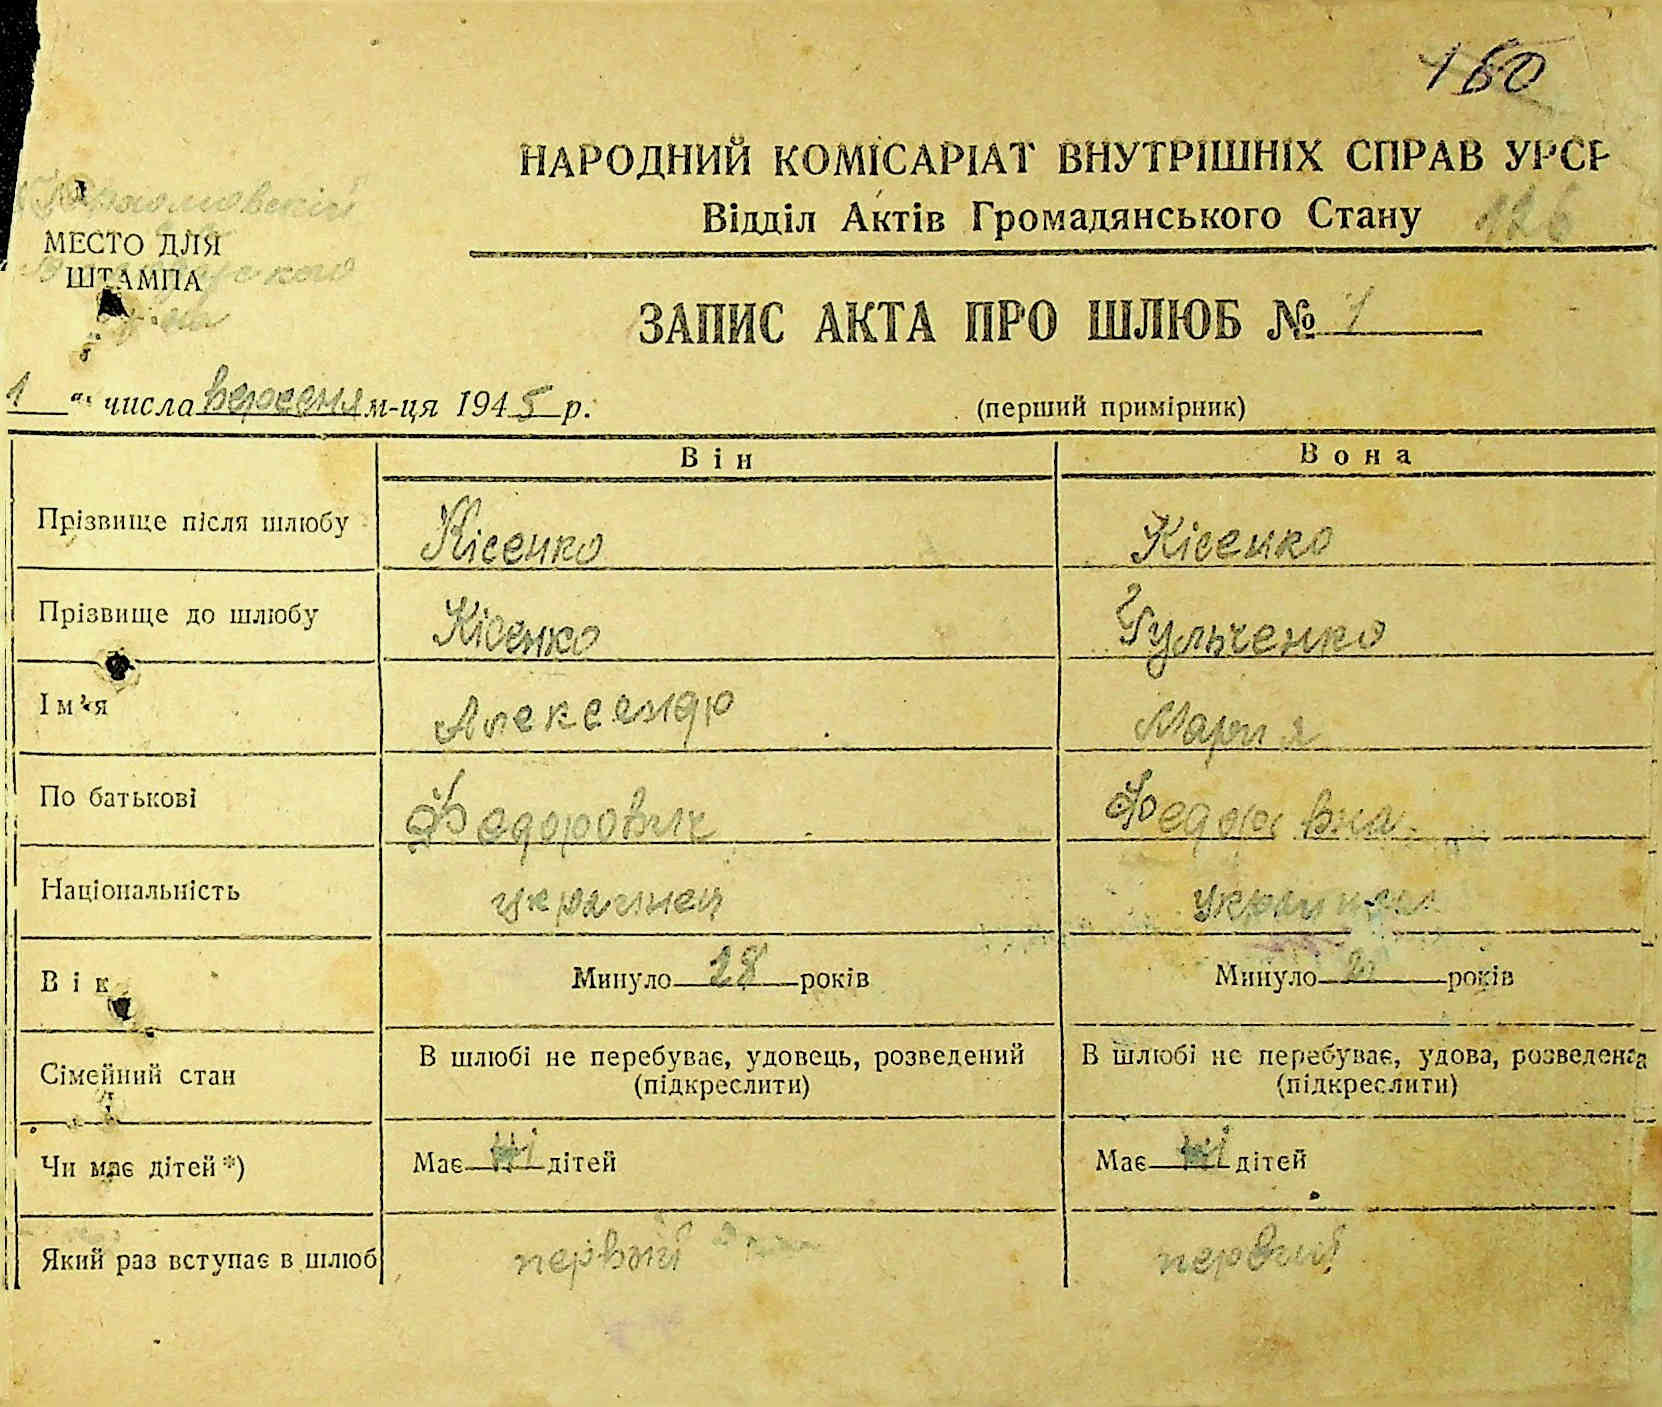 160
НАРОДНИЙ КОМІСАРІАТ ВНУТРІШНІХ СПРАВ УРСР
Відділ Актів Громадянського Стану 126
МЕСТО ДЛЯ
ШТАМПА
ЗАПИС АКТА ПРО ШЛЮБ № 1
1 " числа вересня м-ця 1945 р.
(перший примірник)
Він Вона
Прізвище після шлюбу Кісенко Кісенко
Прізвище до шлюбу Кісенко Гульченко
Ім'я Александр Мария
По батькові Федорович Федоровна
Національність украинец украинка
Вік Минуло 28 років Минуло років
Сімейний стан В шлюбі не перебуває, удовець, розведений В шлюбі не перебуває, удова, розведена
(підкреслити) (підкреслити)
Чи має дітей*) Має ні дітей Має ні дітей
Який раз вступає в шлюб первий первий